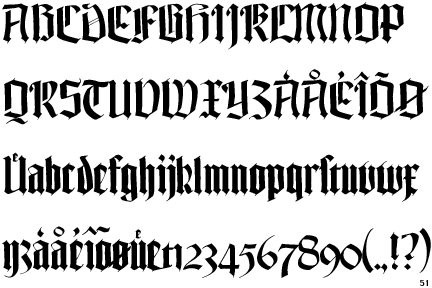 ABCDEFGHIJKLMNOP
QRSTUVWXYZÀÅÉÎÕØ
Üabcdefghijklmnopqrstuvwx
yzàåéîõøüct1234567890(.,!?)
51